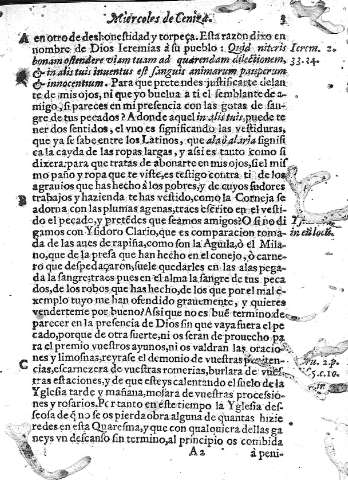 Miércoles de Ceniza. 3
A en otro de deshonestidad y torpeça. Esta razon dixo en
nombre de Dios Ieremias à su pueblo: Quid niteris Ierem. 2.
bonam ostendere viam tuam ad quærendam dilectionem, 33.14.
& in alis tuis inventus est sanguis animarum pauperum
& innocentum. Para que pretendes justificarte delan
te de mis ojos, ni que yo buelua a ti el semblante de a-
migo, si pareces en mi presencia con las gotas de san-
gre de tus pecados? A donde aquel in alis tuis, puede te
ner dos sentidos, el vno es significando las vestiduras,
que ya se sabe entre los Latinos, que ala, & alaria signifi
ca la cayda de las ropas largas, y assi es tanto como si
dixera, para que tratas de abonarte en mis ojos, si el mis
mo paño y ropa que te viste, es testigo contra ti de los
agrauios que has hecho à los pobres, y de cuyos sudores
B trabajos y hazienda te has vestido, como la Corneja se
adorna con las plumas agenas, traes escrito en el vesti-
do el pecado, y pretedes que seamos amigos? O si no di
gamos con Ysidoro Clario, que es comparacion toma-
da de las aues de rapiña, como son la Aguila, ò el Mila-
no, que de la presa que han hecho en el conejo, ò carne-
ro que despedaçaron, suele quedarles en las alas pega-
da la sangre: traes pues en el alma la sangre de tus peca
dos, de los robos que has hecho, de los que por el mal e-
xemplo tuyo me han ofendido grauemente, y quieres
venderteme por bueno? Assi que no es bué termino de
parecer en la presencia de Dios sin que vaya fuera el pe
cado, porque de otra suerte, ni os seran de prouecho pa
ra el premio vuestros ayunos, ni os valdran las oracio-
nes y limosnas, reyrase el demonio de vuestras peniten-
C cias, escarnezera de vuestras romerias, burlara de vues-
tras estaciones, y de que esteys calentando el suelo de la
Yglesia tarde y mañana, mofara de vuestras processio-
nes y rosarios. Por tanto en este tiempo la Yglesia des-
seosa de q no se os pierda obra alguna de quantas hizie
redes en esta Quaresma, y que con qualquiera dellas ga
neys vn descanso sin termino, al principio os combida
A 2 à peni-